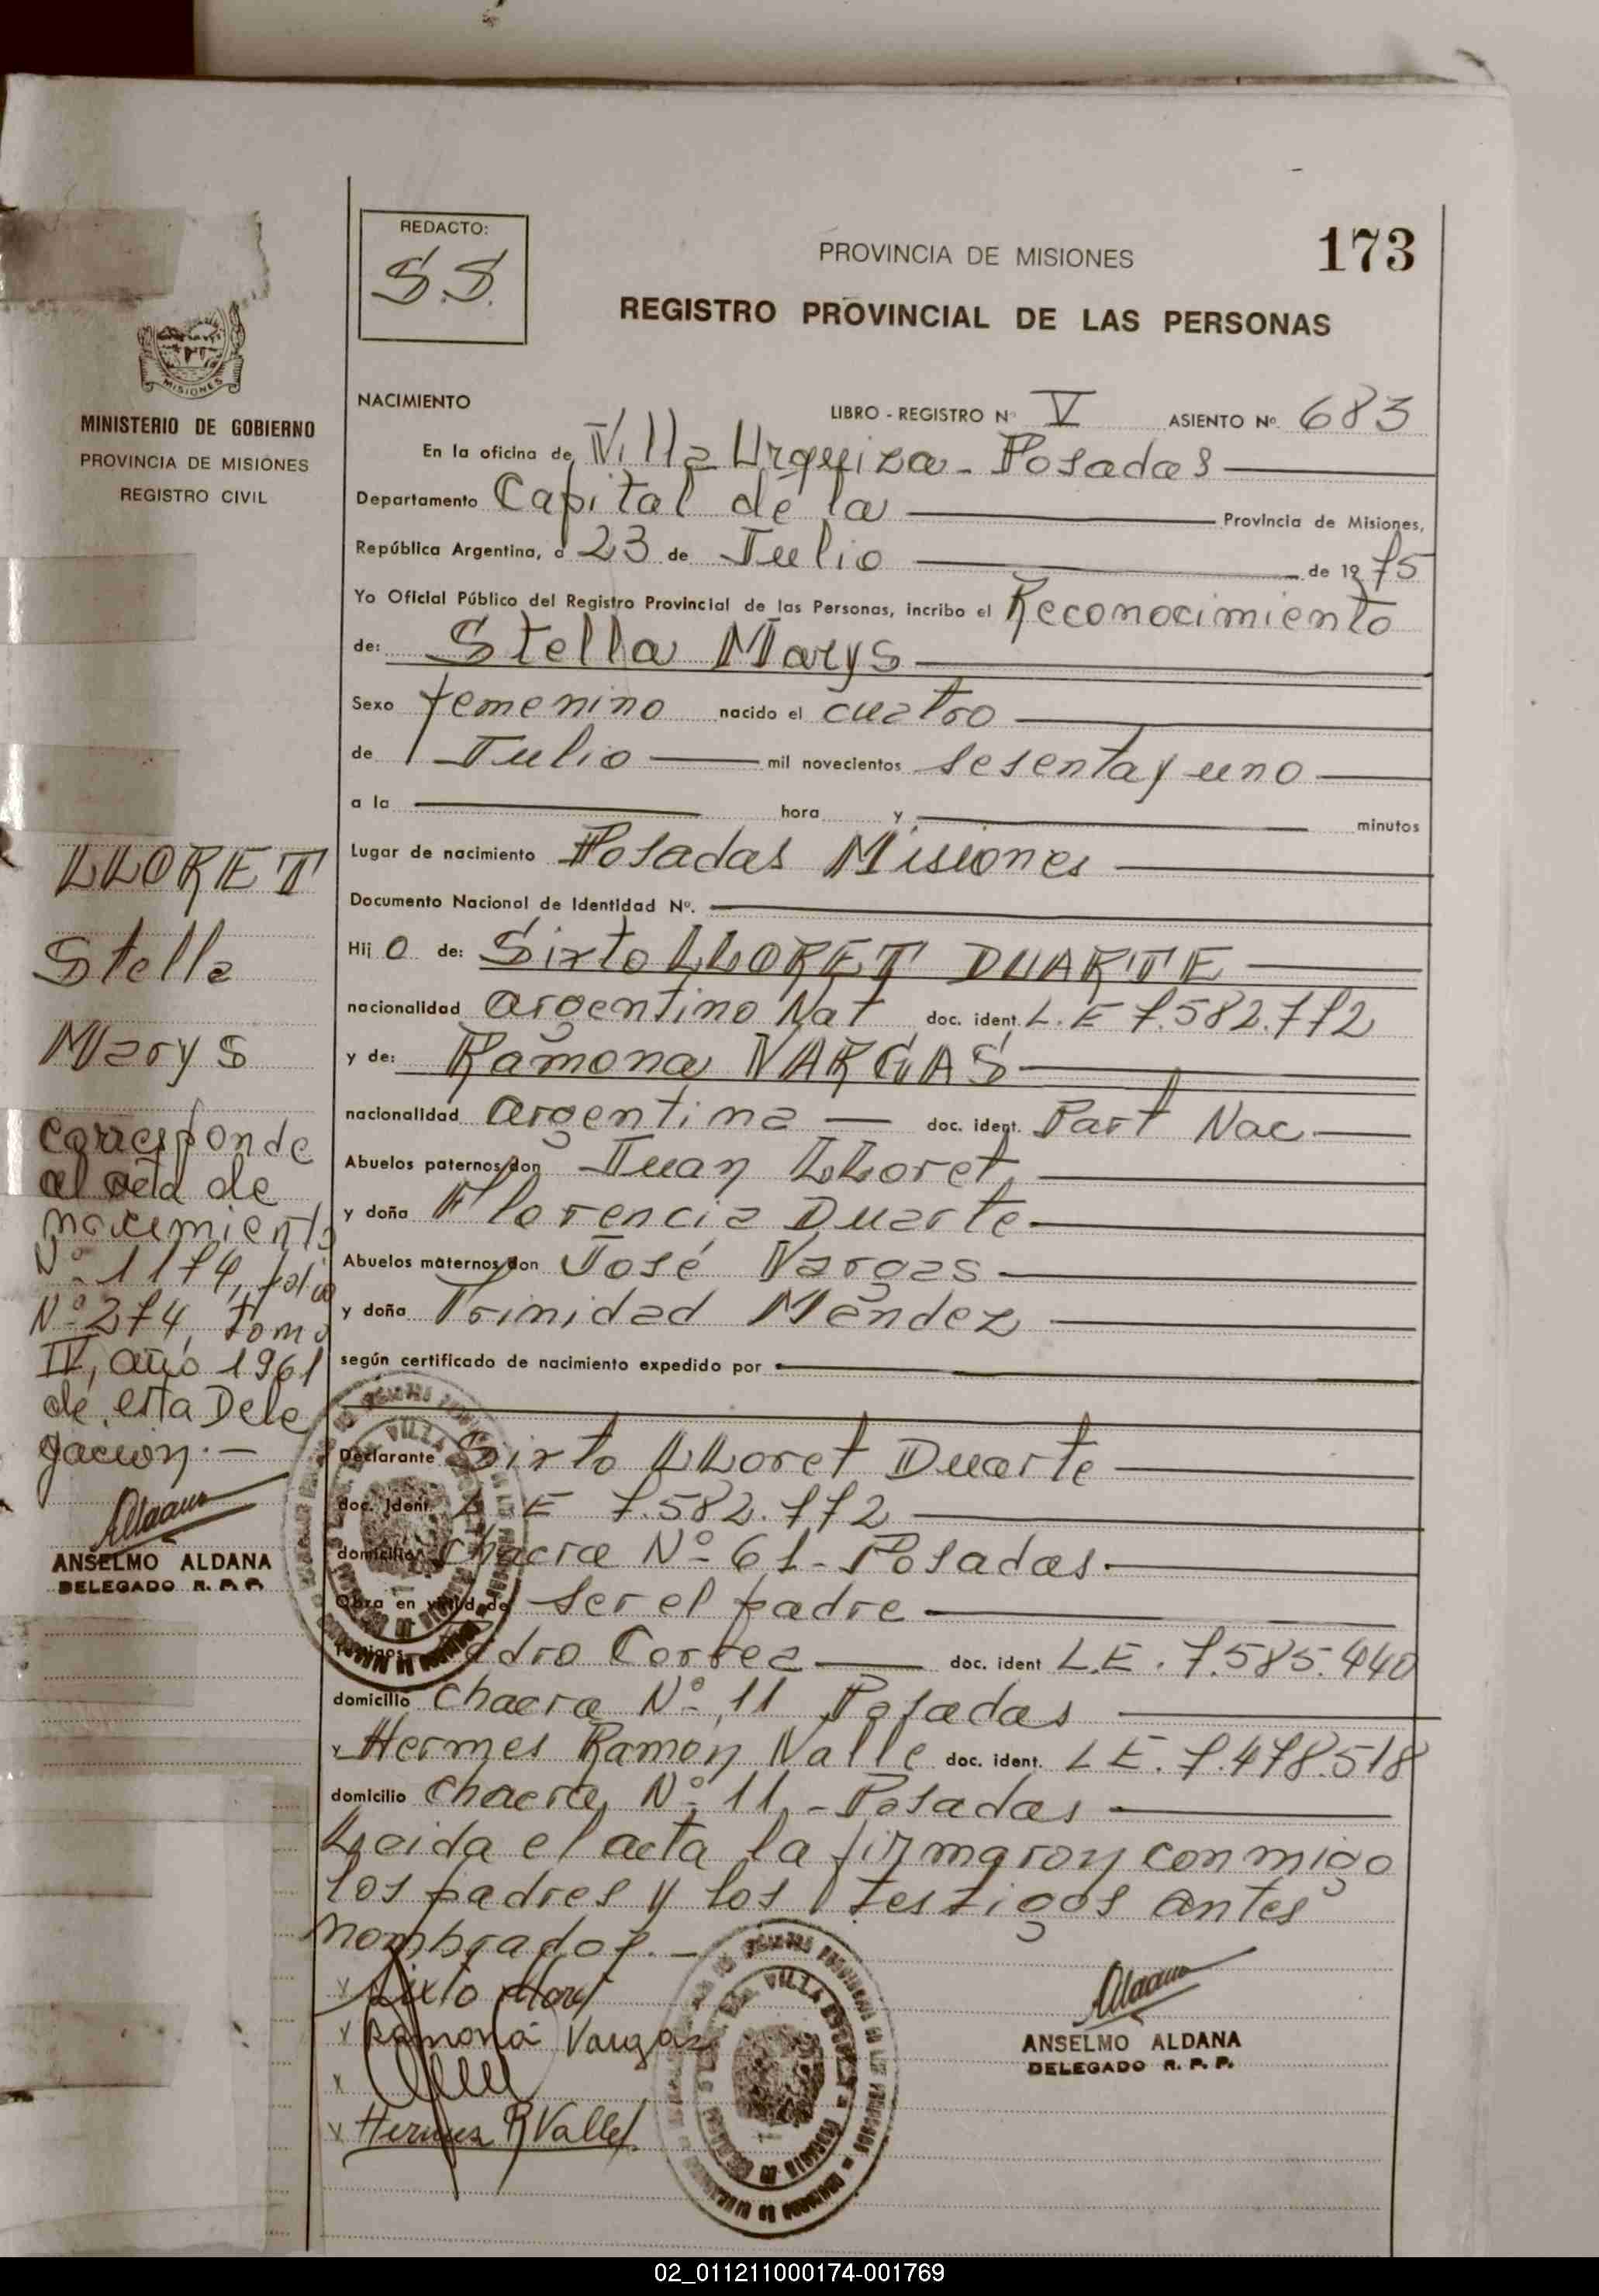 REDACTO:
S.S.
PROVINCIA DE MISIONES
173
REGISTRO PROVINCIAL DE LAS PERSONAS
MISIONES
MINISTERIO DE GOBIERNO
PROVINCIA DE MISIONES
REGISTRO CIVIL
NACIMIENTO
LIBRO - REGISTRO Nº V ASIENTO Nº 683
En la oficina de Villa Urquiza - Posadas
Departamento Capital de la Provincia de Misiones,
República Argentina, a 23 de Julio de 1975
Yo Oficial Público del Registro Provincial de las Personas, incribo el Reconocimiento
de: Stella Marys
Sexo femenino nacido el cuatro
de Julio mil novecientos sesenta y uno
a la hora y minutos
Lugar de nacimiento Posadas Misiones
Documento Nacional de Identidad Nº.
Hij o de: Sixto LLORET DUARTE
nacionalidad argentino Nat doc. ident. L.E 7.582.772
y de: Ramona VARGAS
nacionalidad argentina doc. ident. Part Nac
Abuelos paternos don Juan LLoret
y doña Florencia Duarte
Abuelos maternos don José Vargas
y doña Trinidad Méndez
según certificado de nacimiento expedido por
Declarante Sixto LLoret Duarte
doc. ident. L E 7.582.772
domicilio chacra Nº 61 - Posadas
Obra en virtud de ser el padre
Cortez doc. ident L.E. 7.585.440
domicilio chacra Nº 11 Posadas
y Hermes Ramón Valle doc. ident. L E. 7.478.518
domicilio chacra Nº 11 - Posadas
Leida el acta la firmaron conmigo
los padres y los testigos antes
nombrados. -
x Sixto Lloret
x Ramona Vargas
x
x Hermes R Valle
LLORET
Stella
Marys
corresponde
al acta de
nacimiento
Nº 1174, folio
Nº 274, tomo
IV, año 1961
de esta Dele
gación. -
ANSELMO ALDANA
DELEGADO R. P. P.
ANSELMO ALDANA
DELEGADO R. P. P.
02_011211000174-001769